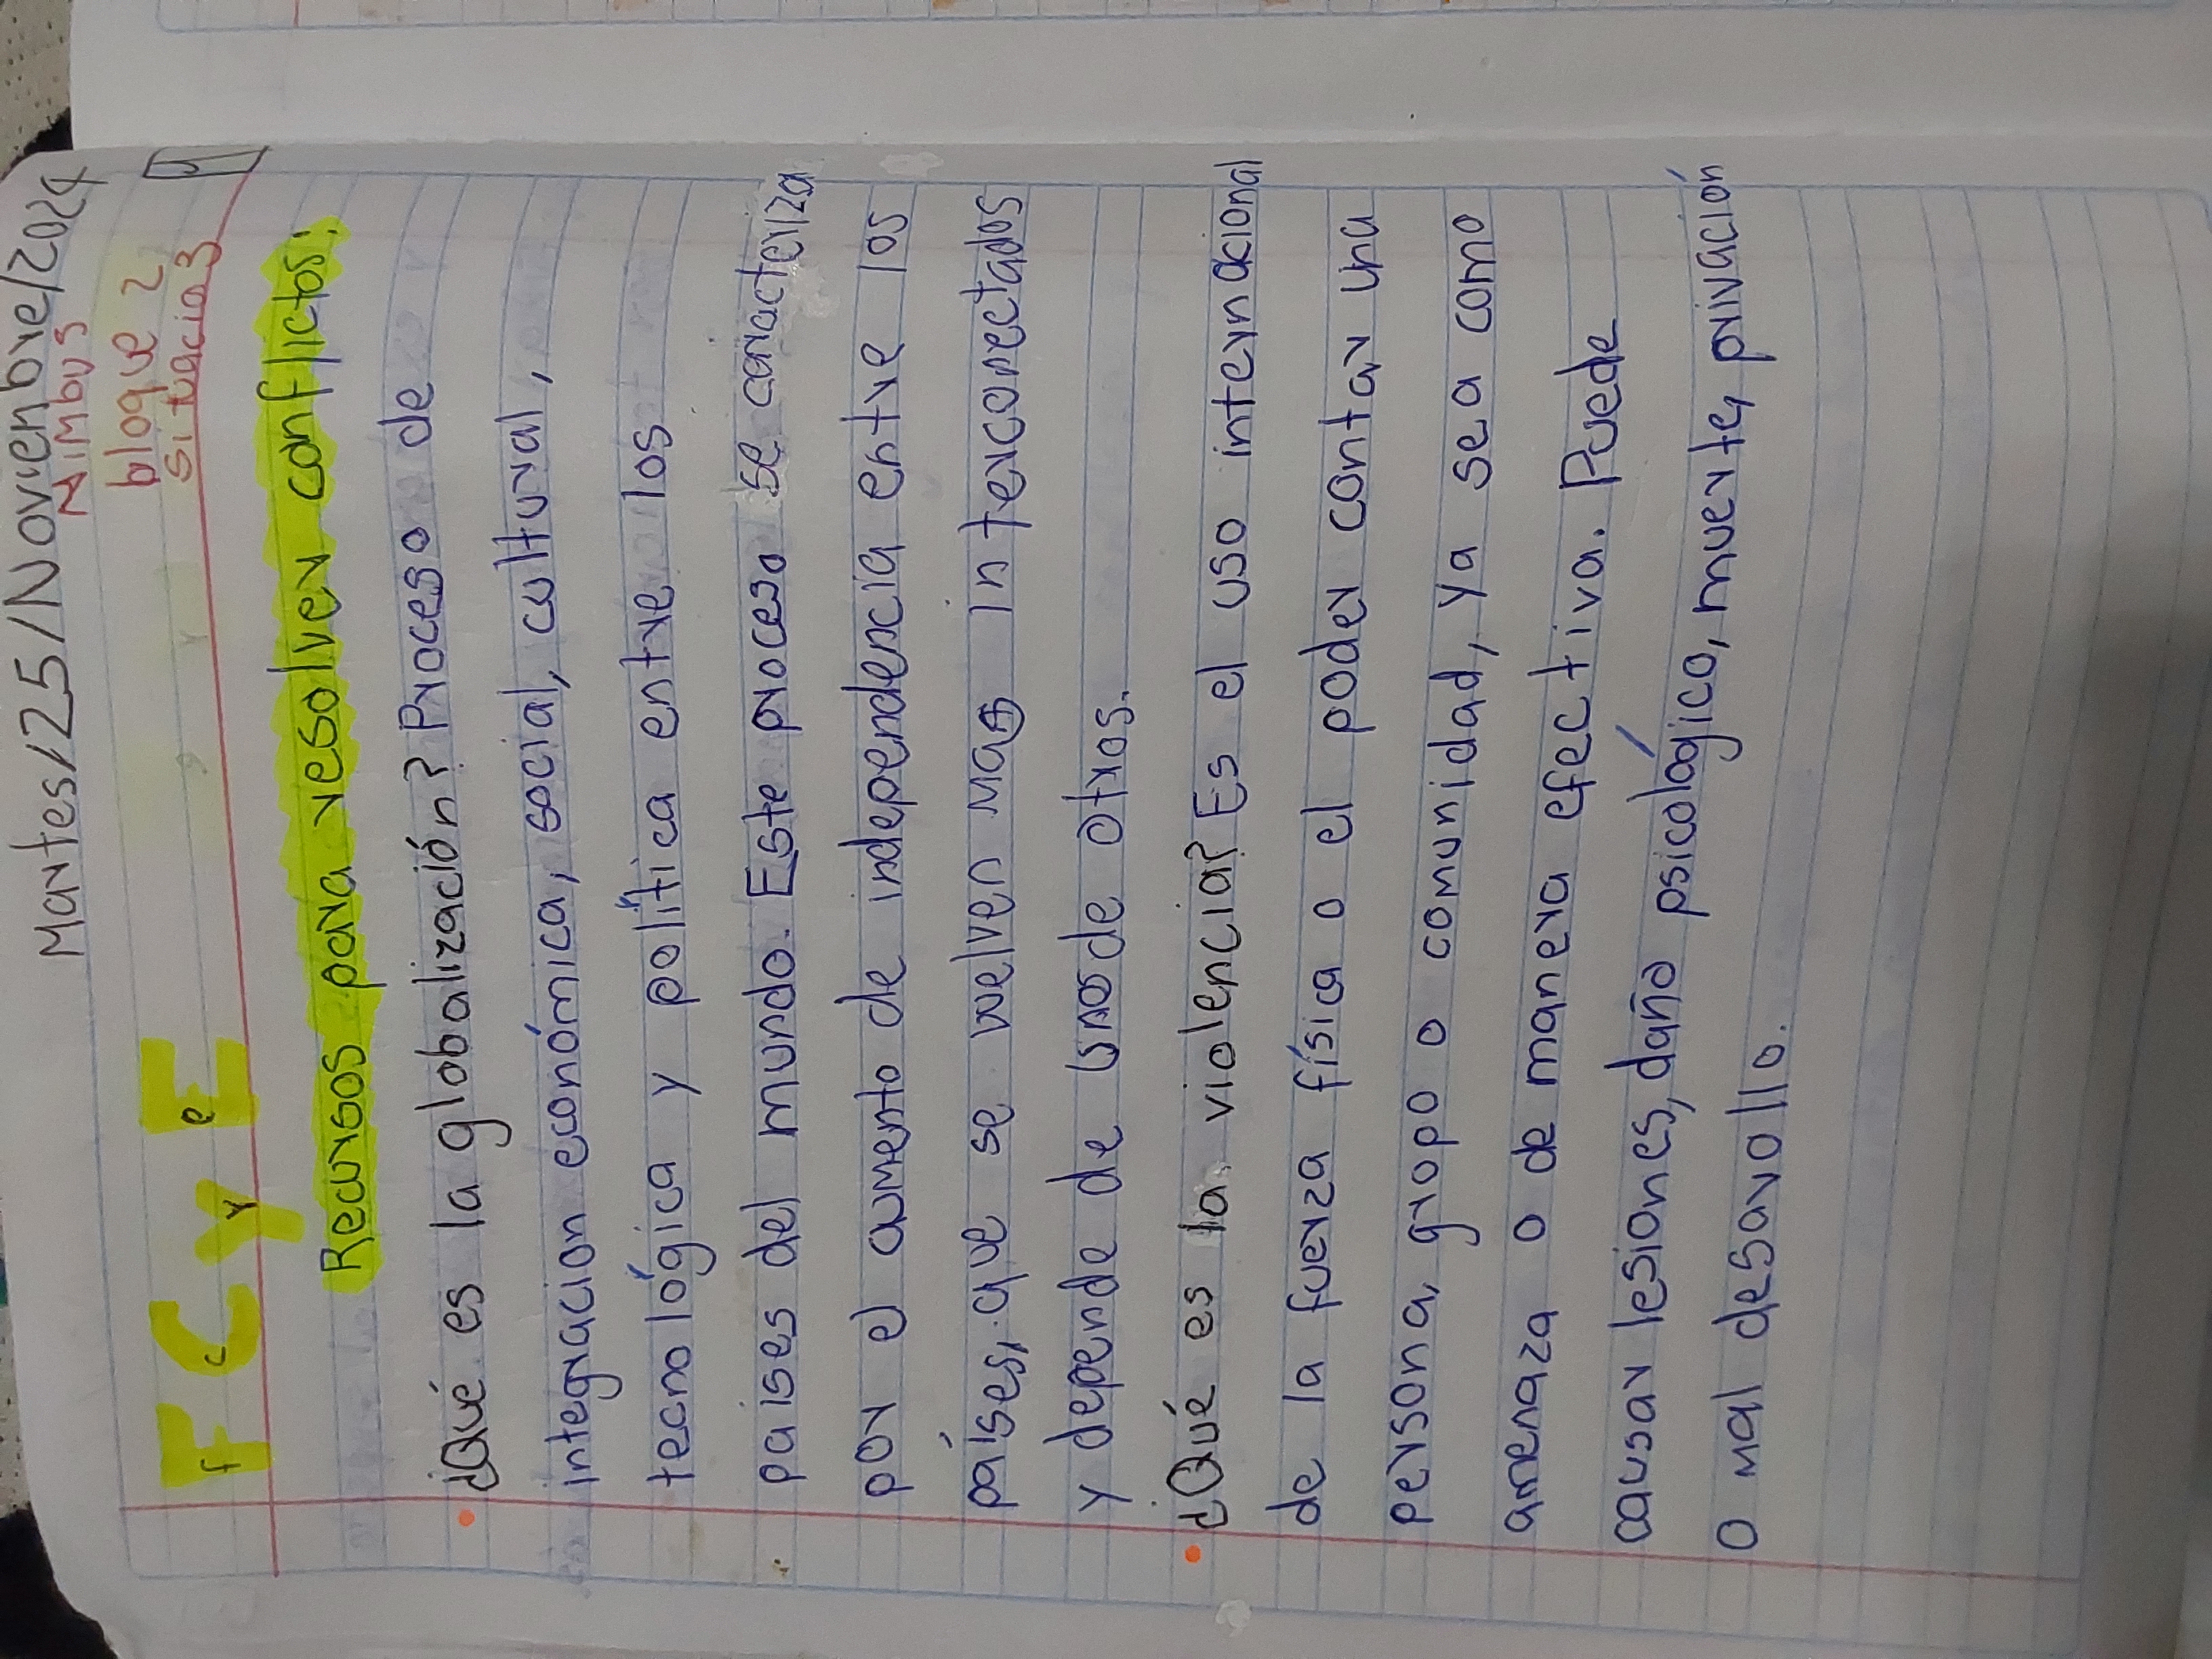 Martes/25/Noviembre/2024
Nimbus
bloque 2
situacio 3
F C y E
Recursos para resolver conflictos:
¿Qué es la globalización? Proceso de
integracion económica, social, cultural,
tecnológica y política entre los
paises del mundo. Este proceso se caracteriza
por el aumento de independencia entre los
países, que se vuelven mas interconectados
y depende de unos de otros.
¿Qué es la violencia? Es el uso internacional
de la fuerza física o el poder contar una
persona, grupo o comunidad, ya sea como
amenaza o de manera efectiva. Puede
causar lesiones, daño psicológico, muerte, privación
o mal desarollo.